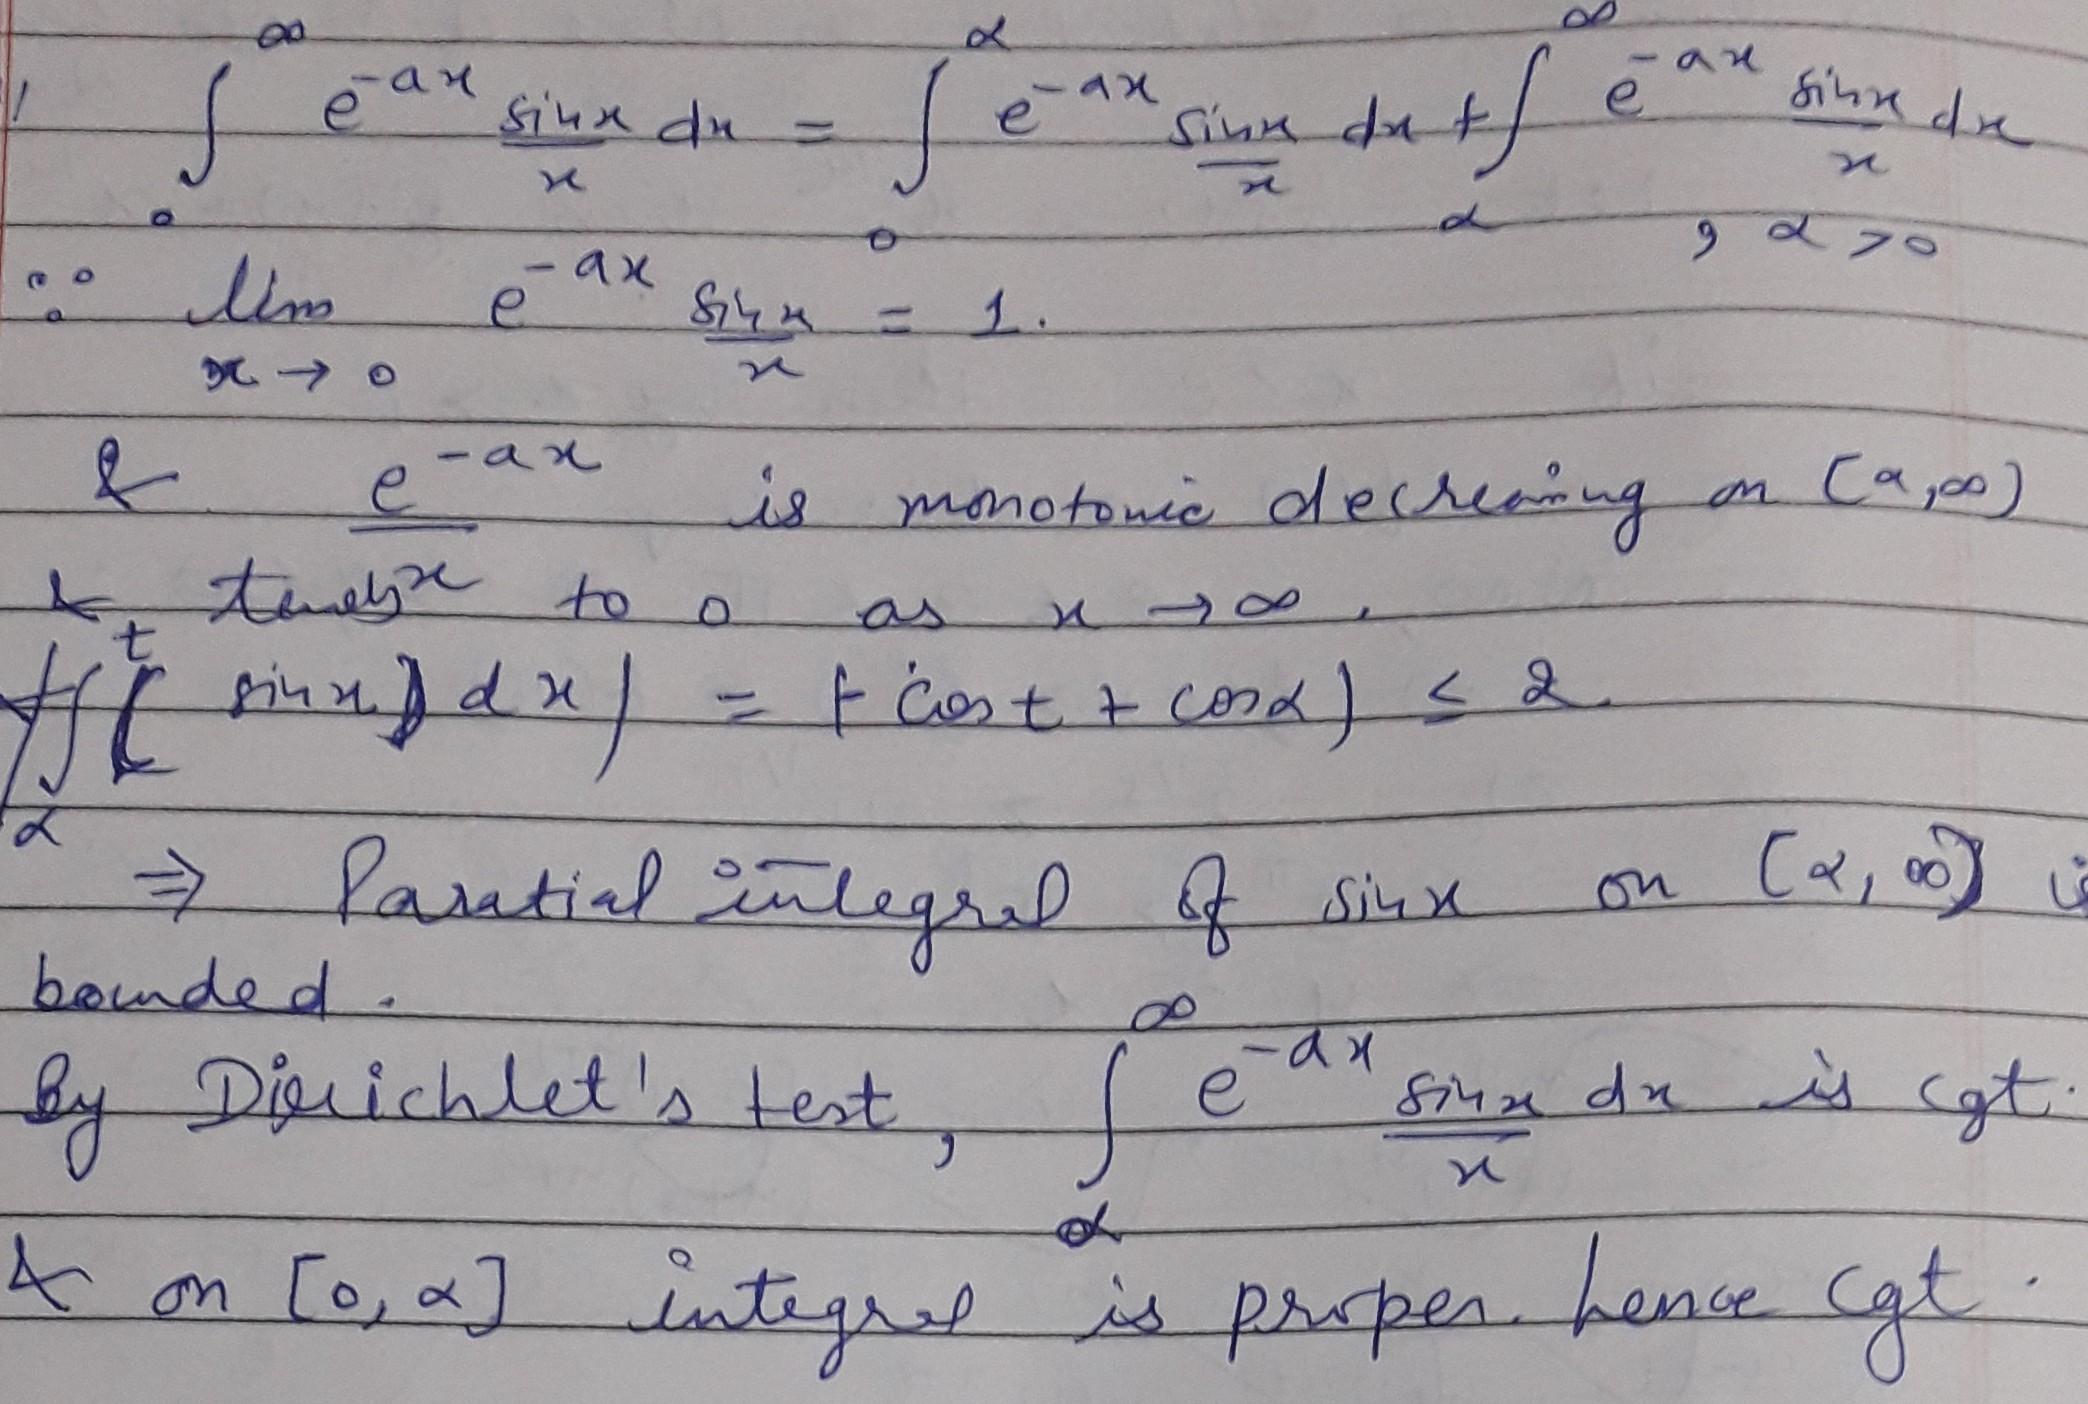 ∫₀^∞ e^{-ax} sinx/x dx = ∫₀^α e^{-ax} sinx/x dx + ∫_α^∞ e^{-ax} sinx/x dx , α > 0
∵ lim_{x→0} e^{-ax} sinx/x = 1.
& e^{-ax}/x is monotonic decreasing on [α,∞)
& tends to 0 as x → ∞.
|∫_α^t (sinx) dx| = |-cost + cosα| ≤ 2
⇒ Paratial integral of sinx on [α, ∞) is
bounded.
By Dirichlet's test, ∫_α^∞ e^{-ax} sinx/x dx is cgt.
& on [0, α] integral is proper hence cgt.